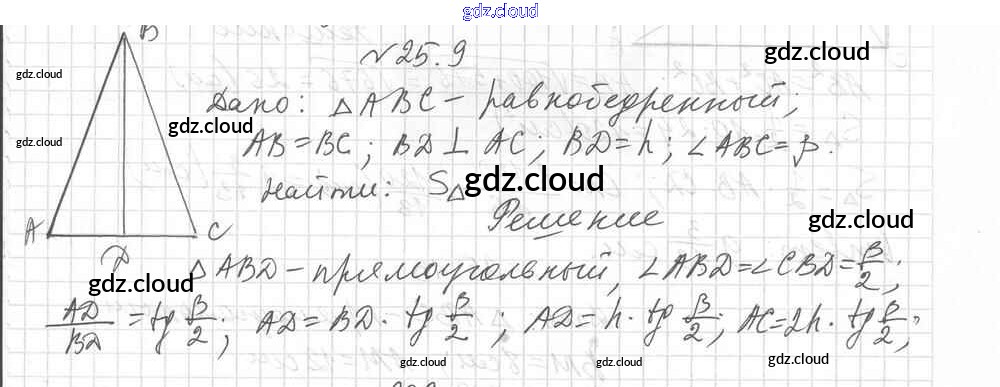 gdz.cloud
B
N 25.9
gdz.cloud
gdz.cloud
Дано: △ABC – равнобедренный;
gdz.cloud
gdz.cloud
AB = BC; BD ⊥ AC; BD = h; ∠ABC = β.
gdz.cloud
Найти: S△
gdz.cloud
Решение
gdz.cloud
A C
D
△ABD – прямоугольный, ∠ABD = ∠CBD = β/2;
gdz.cloud
gdz.cloud
AD/BD = tg β/2; AD = BD · tg β/2; AD = h · tg β/2; AC = 2h · tg β/2;
gdz.cloud
gdz.cloud
gdz.cloud